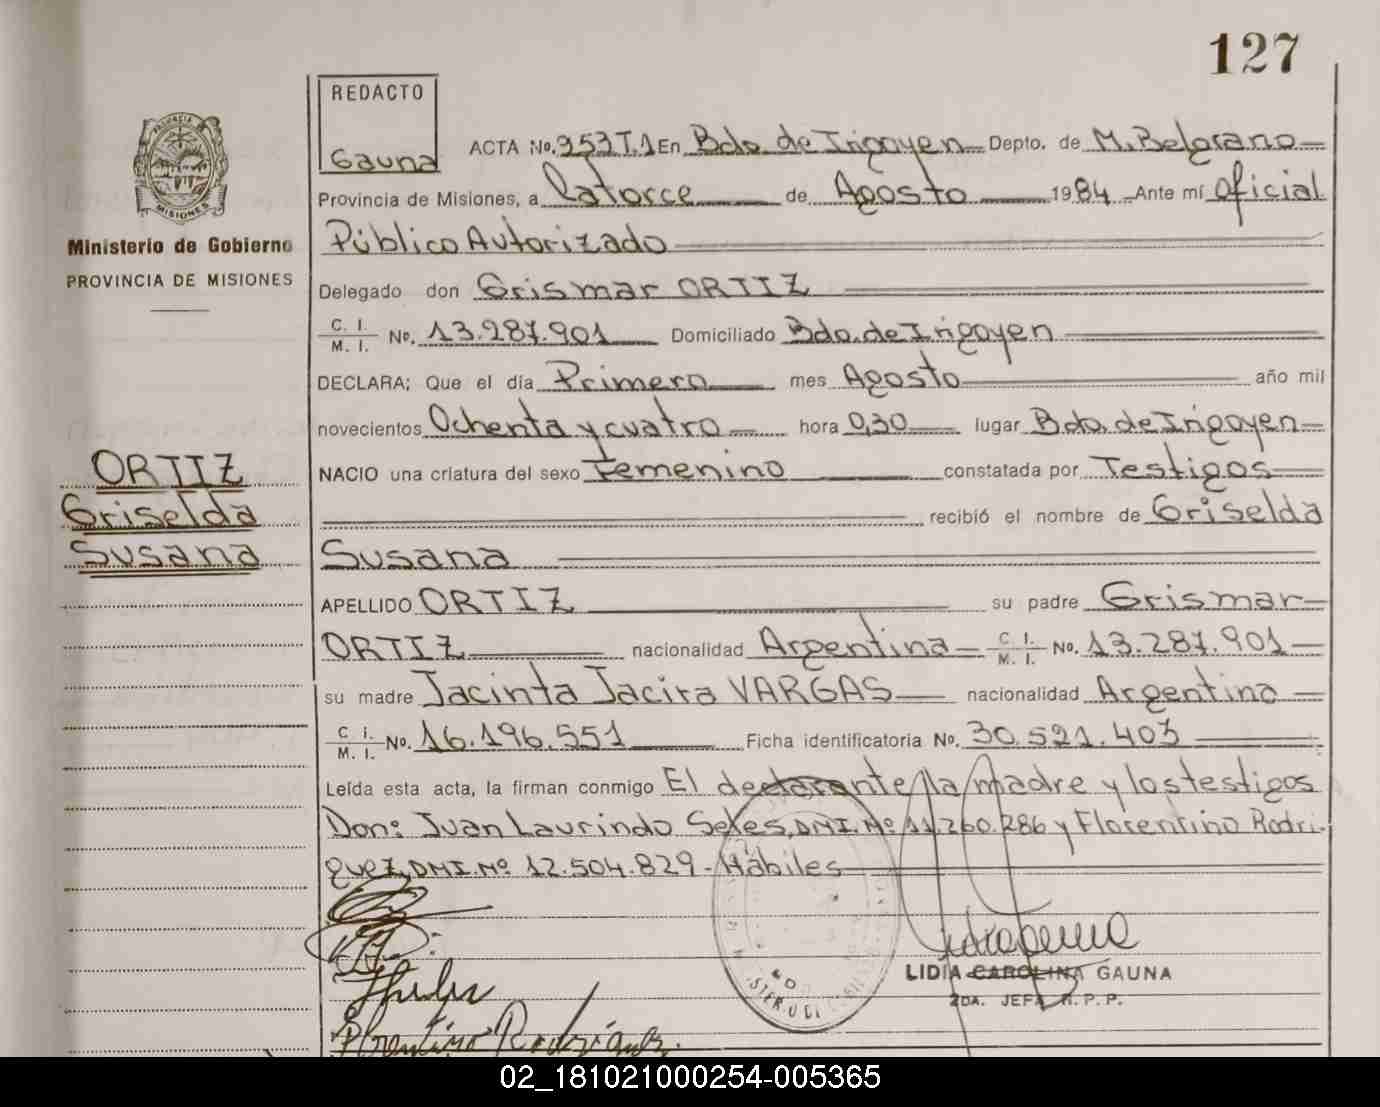 127
REDACTO
Gauna
PROVINCIA DE
MISIONES
Ministerio de Gobierno
PROVINCIA DE MISIONES
ACTA No. 953T.1 En Bdo. de Irigoyen Depto. de M. Belgrano
Provincia de Misiones, a Catorce de Agosto 1984 Ante mí Oficial
Público Autorizado
Delegado don Grismar ORTIZ
C. I. M. I. No. 13.287.901 Domiciliado Bdo. de Irigoyen
DECLARA; Que el día Primero mes Agosto año mil
novecientos Ochenta y cuatro hora 0,30 lugar Bdo. de Irigoyen
NACIO una criatura del sexo Femenino constatada por Testigos
recibió el nombre de Griselda
Susana
ORTIZ
Griselda
Susana
APELLIDO ORTIZ su padre Grismar
ORTIZ nacionalidad Argentina C. I. M. I. No. 13.287.901
su madre Jacinta Jacira VARGAS nacionalidad Argentina
C. I. M. I. No. 16.196.551 Ficha identificatoria No. 30.521.403
Leída esta acta, la firman conmigo El declarante, la madre y los testigos
Don: Juan Laurindo DNI. Nº 11.260.286 y Florentino Rodri-
guez, DNI. Nº 12.504.829 - Hábiles
LIDIA CAROLINA GAUNA
2DA. JEFA R. P. P.
Florentino Rodríguez.
02_181021000254-005365